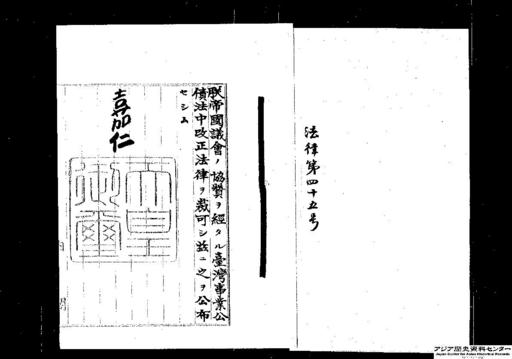 法律第四十五号
朕帝國議會ノ協賛ヲ經タル臺灣事業公
債法中改正法律ヲ裁可シ茲ニ之ヲ公布
セシム
嘉仁
天皇
御璽
アジア歴史資料センター
Japan Center for Asian Historical Records